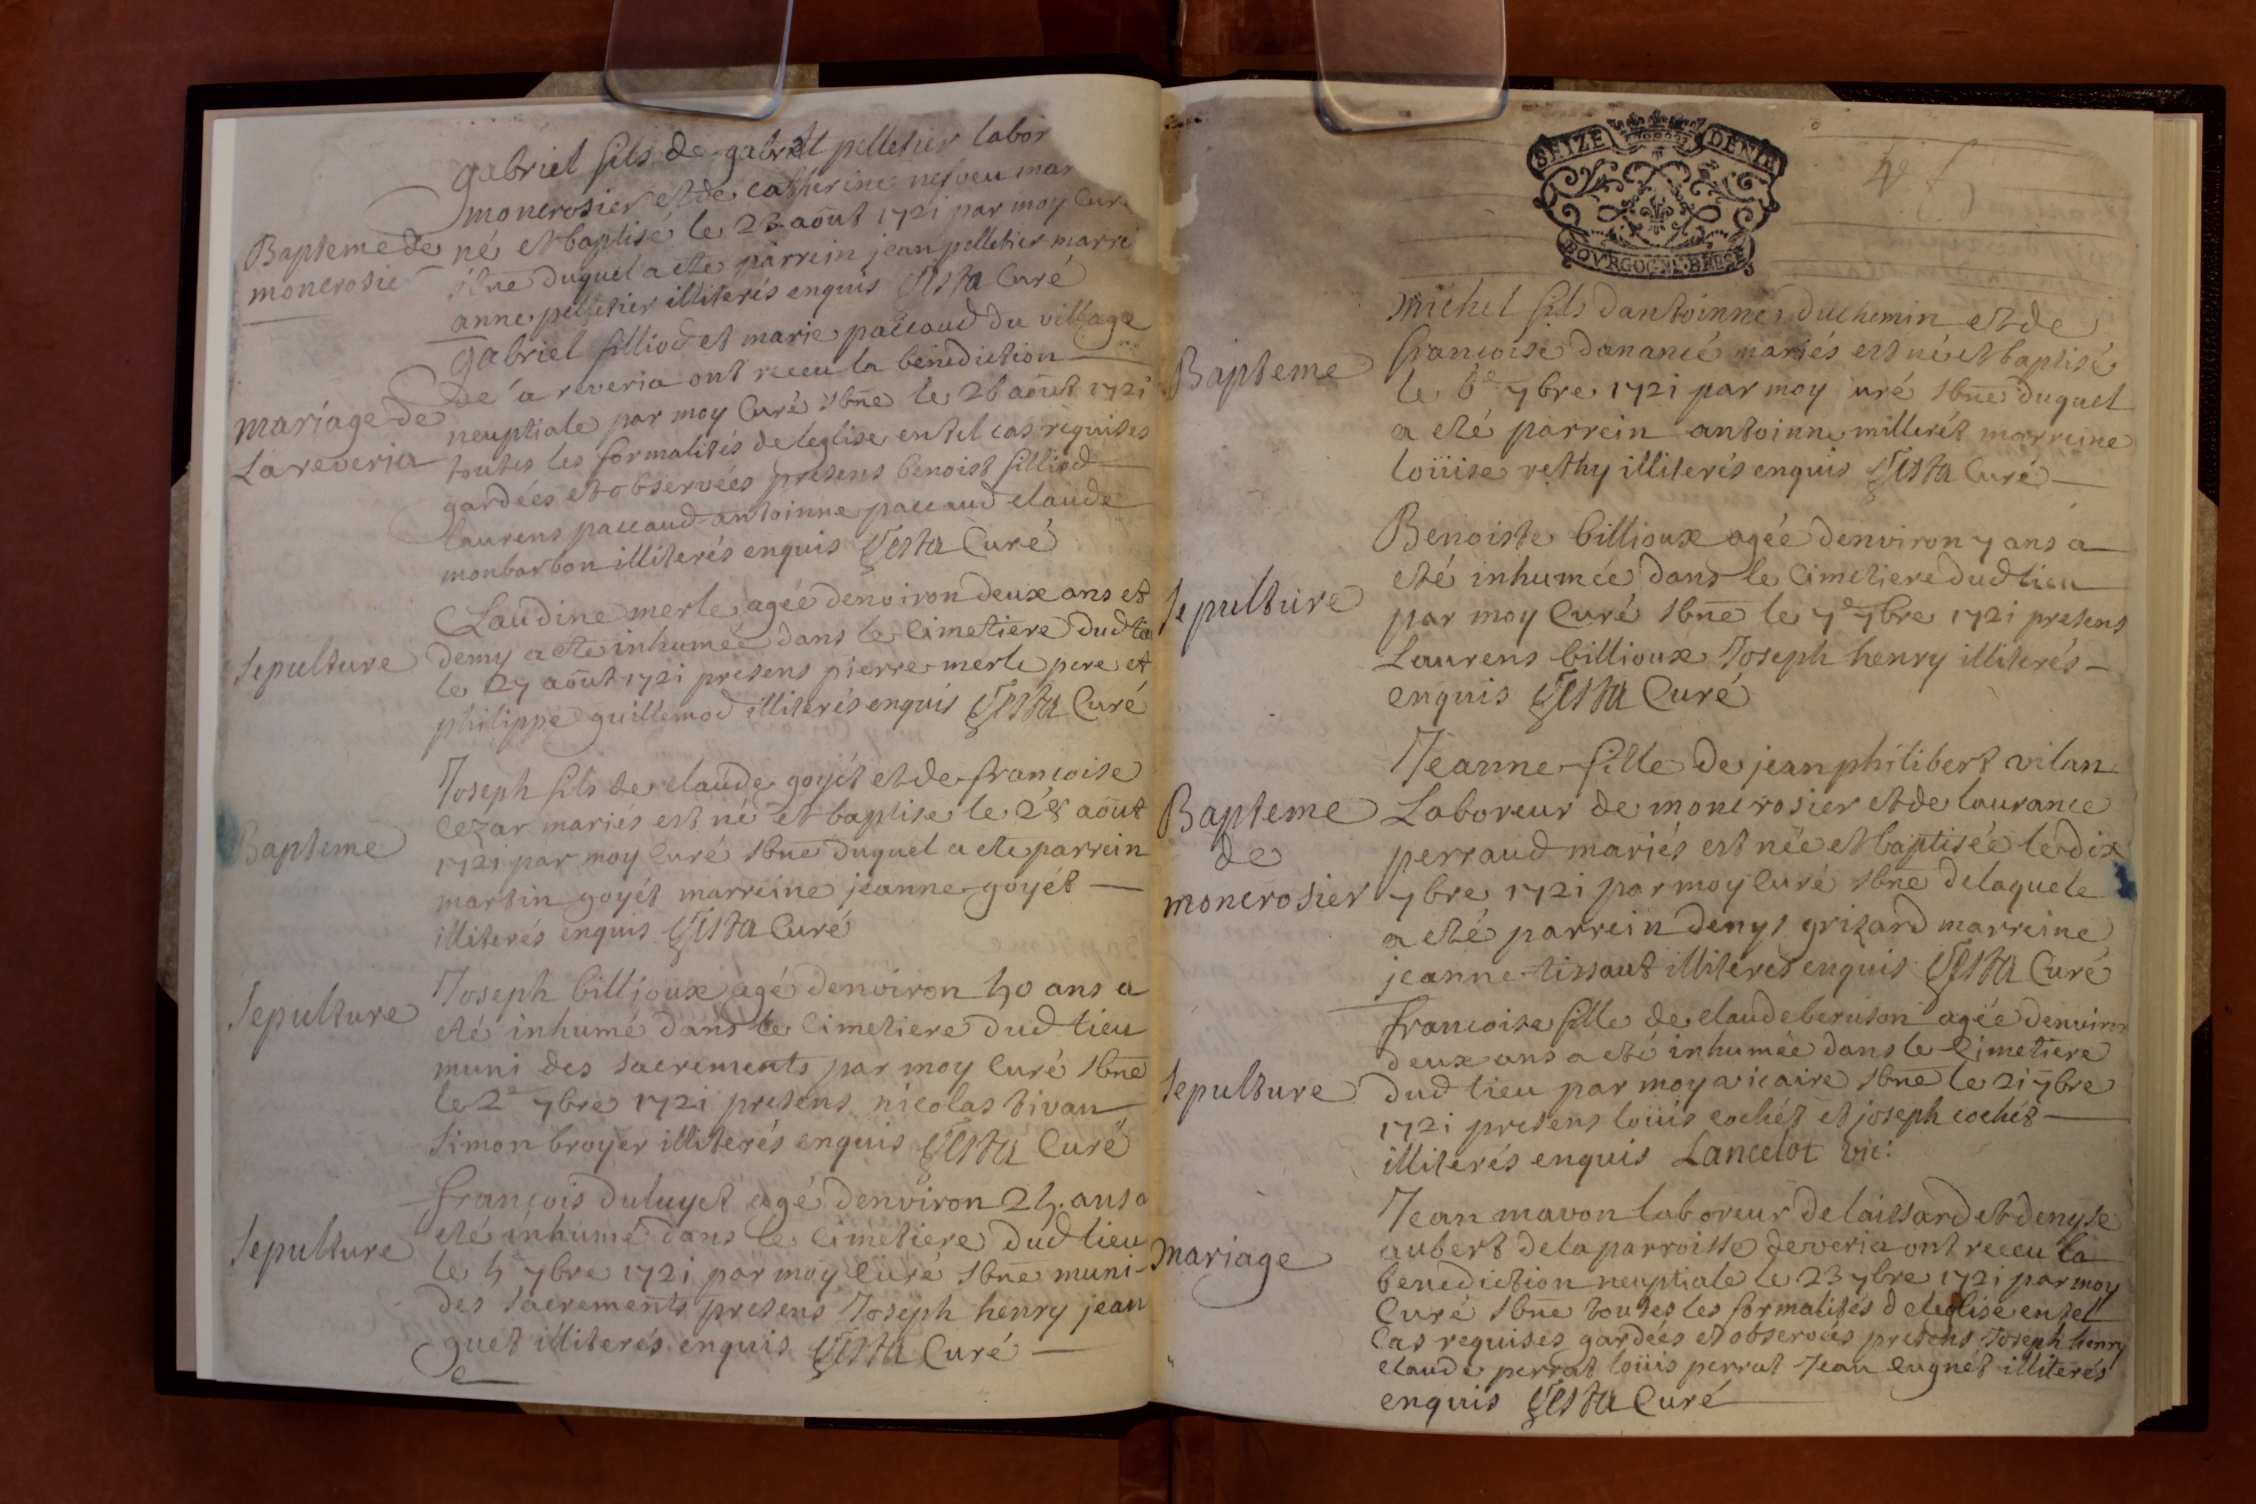 gabriel fils de gabriel pelletier labor
moncrosier et de catherine nerveu mar
Bapteme de
moncrosie
né et baptisé le 23 aout 1721 par moy Cur
sbne duquel a ete parrein jean pelletier marre
anne pelletier illiterés enquis Testa Curé
Mariage de
La reveria
gabriel filliod et marie paccaud du village
de la reveria ont receu la benediction
neuptiale par moy Curé sbne le 26 aout 1721
toutes les formalités de leglise en tel cas requises
gardées et observées presens benoist filliod
laurens paccaud antoinne paccaud claude
monbarbon illiterés enquis Testa Curé
Sepulture
Claudine merle agée denviron deux ans et
demy a ete inhumée dans le Cimetiere dud lieu
le 27 aout 1721 presens pierre merle pere et
philippe guillemod illiterés enquis Testa Curé
Bapteme
Joseph fils de claude goyét et de francoise
Cezar mariés est né et baptise le 28 aout
1721 par moy Curé sbne duquel a ete parrein
martin goyét marreine jeanne goyét
illiterés enquis Testa Curé
Sepulture
Joseph billjoux agé denviron 40 ans a
eté inhumé dans le Cimetiere dud lieu
muni des sacrements par moy Curé sbne
le 2e 7bre 1721 presens nicolas tivan
Simon broyer illiterés enquis Testa Curé
Sepulture
françois duluyet agé denviron 24 ans a
eté inhumé dans le Cimetiere dud lieu
le 4e 7bre 1721 par moy Curé sbne muni
des sacrements presens Joseph henry jean
guet illiterés enquis Testa Curé
SEIZE DENIE
BOVRGOGNE BRESSE
Bapteme
Michel fils dantoinne duchemin et de
francoise danancé mariés est né et baptisé
le 6e 7bre 1721 par moy curé sbne duquel
a eté parrein antoinne millerét marreine
loüise rethy illiterés enquis Testa Curé
Sepulture
Benoiste billioux agée denviron 7 ans a
eté inhumée dans le Cimetiere dud lieu
par moy Curé sbne le 7e 7bre 1721 presens
Laurens billioux Joseph henry illiterés
enquis Testa Curé
Bapteme
de
moncrosier
Jeanne fille de jean philibert vilan
Laboreur de moncrosier et de laurance
perraud mariés est née et baptisée le dix
7bre 1721 par moy Curé sbne delaquele
a eté parrein denys grizard marreine
jeanne tissaut illiteres enquis Testa Curé
Sepulture
francoise fille de claude beruson agée denviron
deux ans a eté inhumée dans le Cimetiere
dud lieu par moy vicaire sbne le 21 7bre
1721 presens loüis cochét et joseph cochét
illiterés enquis Lancelot vic:
Mariage
Jean mavon laboreur delaissard et denyse
aubert de la parroisse de veria ont receu la
benediction neuptiale le 23 7bre 1721 par moy
Curé sbne toutes les formalités deleglise en tel
Cas requises gardées et observées presens Joseph henry
claude perrat loüis perrat Jean Cugnét illiterés
enquis Testa Curé